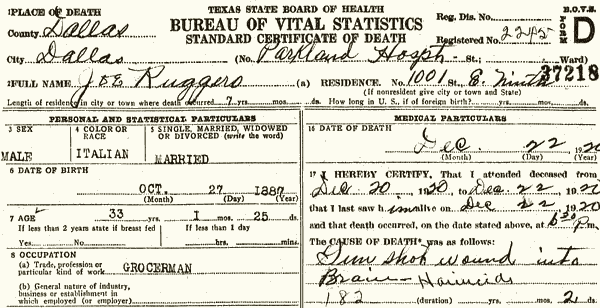 1 PLACE OF DEATH
TEXAS STATE BOARD OF HEALTH
B.O.V.S.
County Dallas
BUREAU OF VITAL STATISTICS
Reg. Dis. No.
FORM D
STANDARD CERTIFICATE OF DEATH
Registered No. 2242
City Dallas (No. Parkland Hosptl St.; Ward)
37218
2 FULL NAME Joe Ruggero (a) RESIDENCE. No. 1001 St. E. Ninth
(If nonresident give city or town and State)
Length of residence in city or town where death occurred 7 yrs. mos. ds. How long in U. S., if of foreign birth? yrs. mos. ds.
PERSONAL AND STATISTICAL PARTICULARS
3 SEX
4 COLOR OR RACE
5 SINGLE, MARRIED, WIDOWED OR DIVORCED (write the word)
MALE ITALIAN MARRIED
6 DATE OF BIRTH
OCT. 27 1887
(Month) (Day) (Year)
7 AGE 33 yrs. 1 mos. 25 ds.
If less than 2 years state if breast fed
If less than 1 day
Yes No hrs. mins.
8 OCCUPATION
(a) Trade, profession or particular kind of work GROCERMAN
(b) General nature of industry, business or establishment in which employed (or employer)
MEDICAL PARTICULARS
16 DATE OF DEATH
Dec. 22 1920
(Month) (Day) (Year)
17 I HEREBY CERTIFY, That I attended deceased from
Dec 20, 1920 to Dec. 22, 1920
that I last saw him alive on Dec 22 1920
and that death occurred, on the date stated above, at 6 30 P.m.
The CAUSE OF DEATH* was as follows:
Gun shot wound into
Brain - Homicide
182 (duration) yrs. mos. 2 ds.